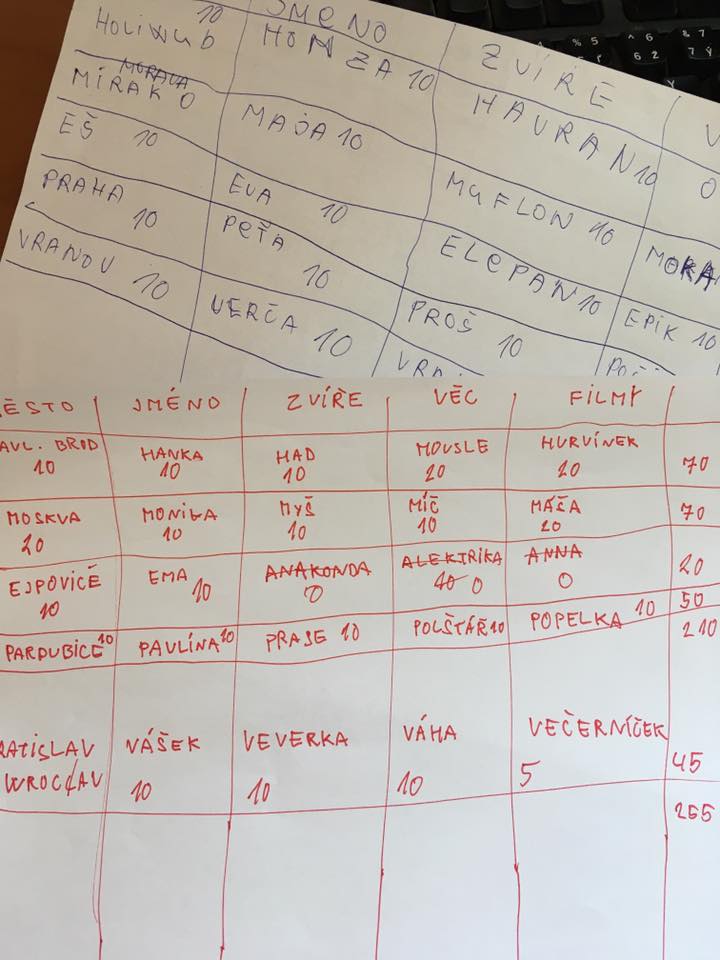 10 JMENO ZVÍŘE V
HOLIWUD HOMZA 10 HAVRAN 10 O
MORAVA
MÍRAK 0 MAJA 10 MUFLON 10 MORA
EŠ 10 EVA 10 ELEPAN 10 EPIK 10
PRAHA 10 PEŤA 10 PROŠ 10
VRANOV 10 VERČA 10
ĚSTO JMÉNO ZVÍŘE VĚC FILMY
AVL. BROD HANKA HAD MOUSLE HURVÍNEK
10 10 10 20 20 70
MOSKVA MONIKA MYŠ MÍČ MÁŠA
20 10 10 10 20 70
EJPOVICE EMA ANAKONDA ALEKTRIKA ANNA
10 10 0 10 0 0 20
50
PARDUBICE 10 PAVLÍNA 10 PRASE 10 POLŠTÁŘ 10 POPELKA 10
210
RATISLAV VÁŠEK VEVERKA VÁHA VEČERNÍČEK
WROCŁAV 10 10 10 5 45
255